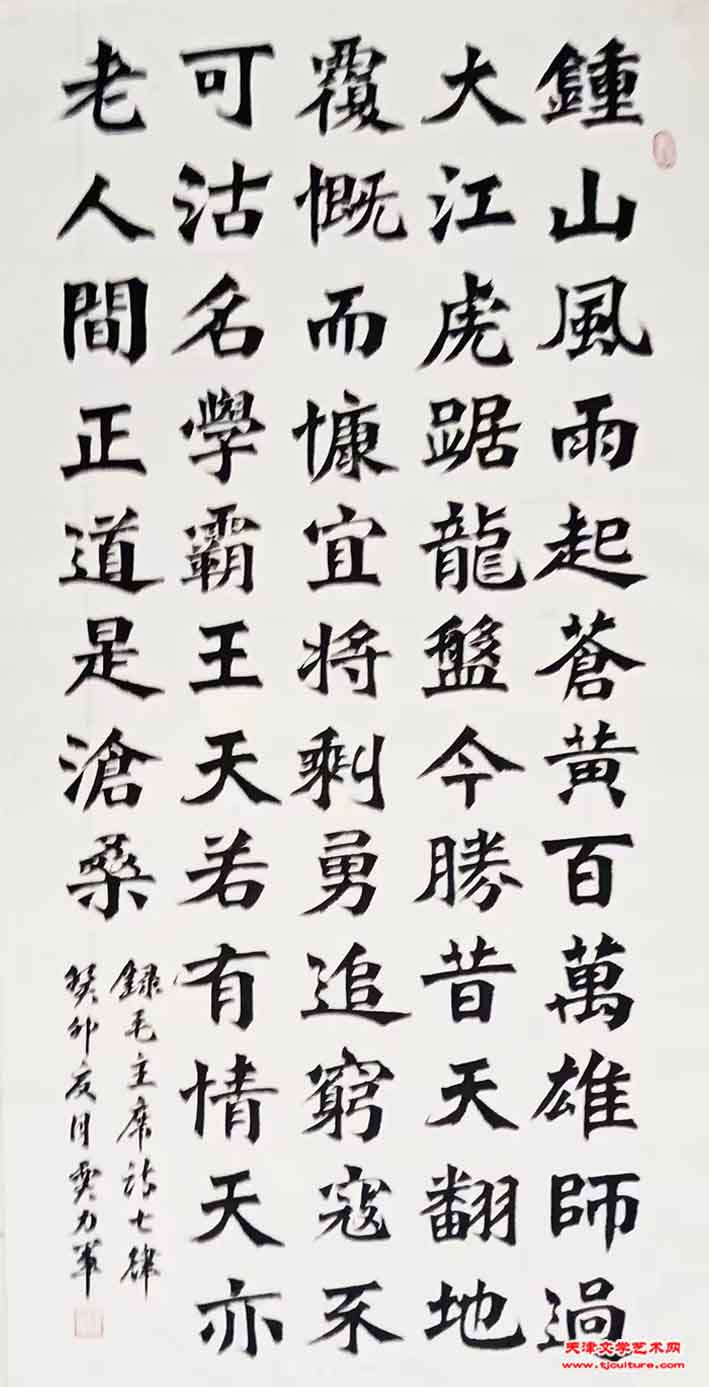 鍾山風雨起蒼黃百萬雄師過
大江虎踞龍盤今勝昔天翻地
覆慨而慷宜將剩勇追窮寇不
可沽名學霸王天若有情天亦
老人間正道是滄桑
錄毛主席詩七律
癸卯亥月 力軍
天津文学艺术网
www.tjculture.com